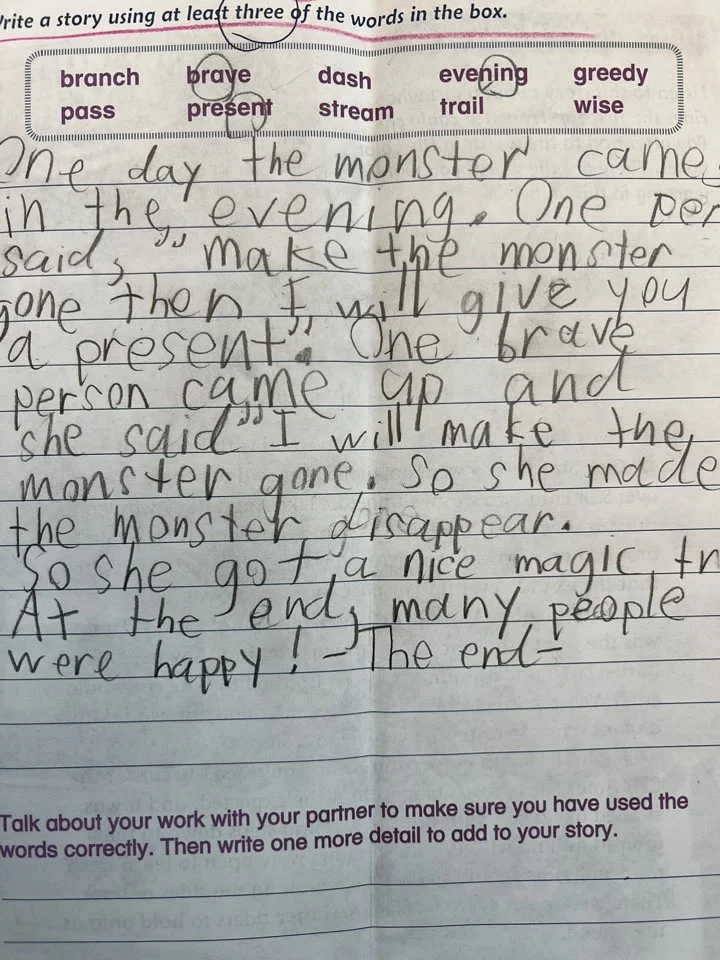 rite a story using at least three of the words in the box.
branch brave dash evening greedy
pass present stream trail wise
One day the monster came
in the evening. One per
said, "make the monster
gone then I will give you
a present". One brave
person came up and
she said "I will make the
monster gone. So she made
the monster disappear.
So she got a nice magic tr
At the end, many people
were happy! - The end-
Talk about your work with your partner to make sure you have used the
words correctly. Then write one more detail to add to your story.